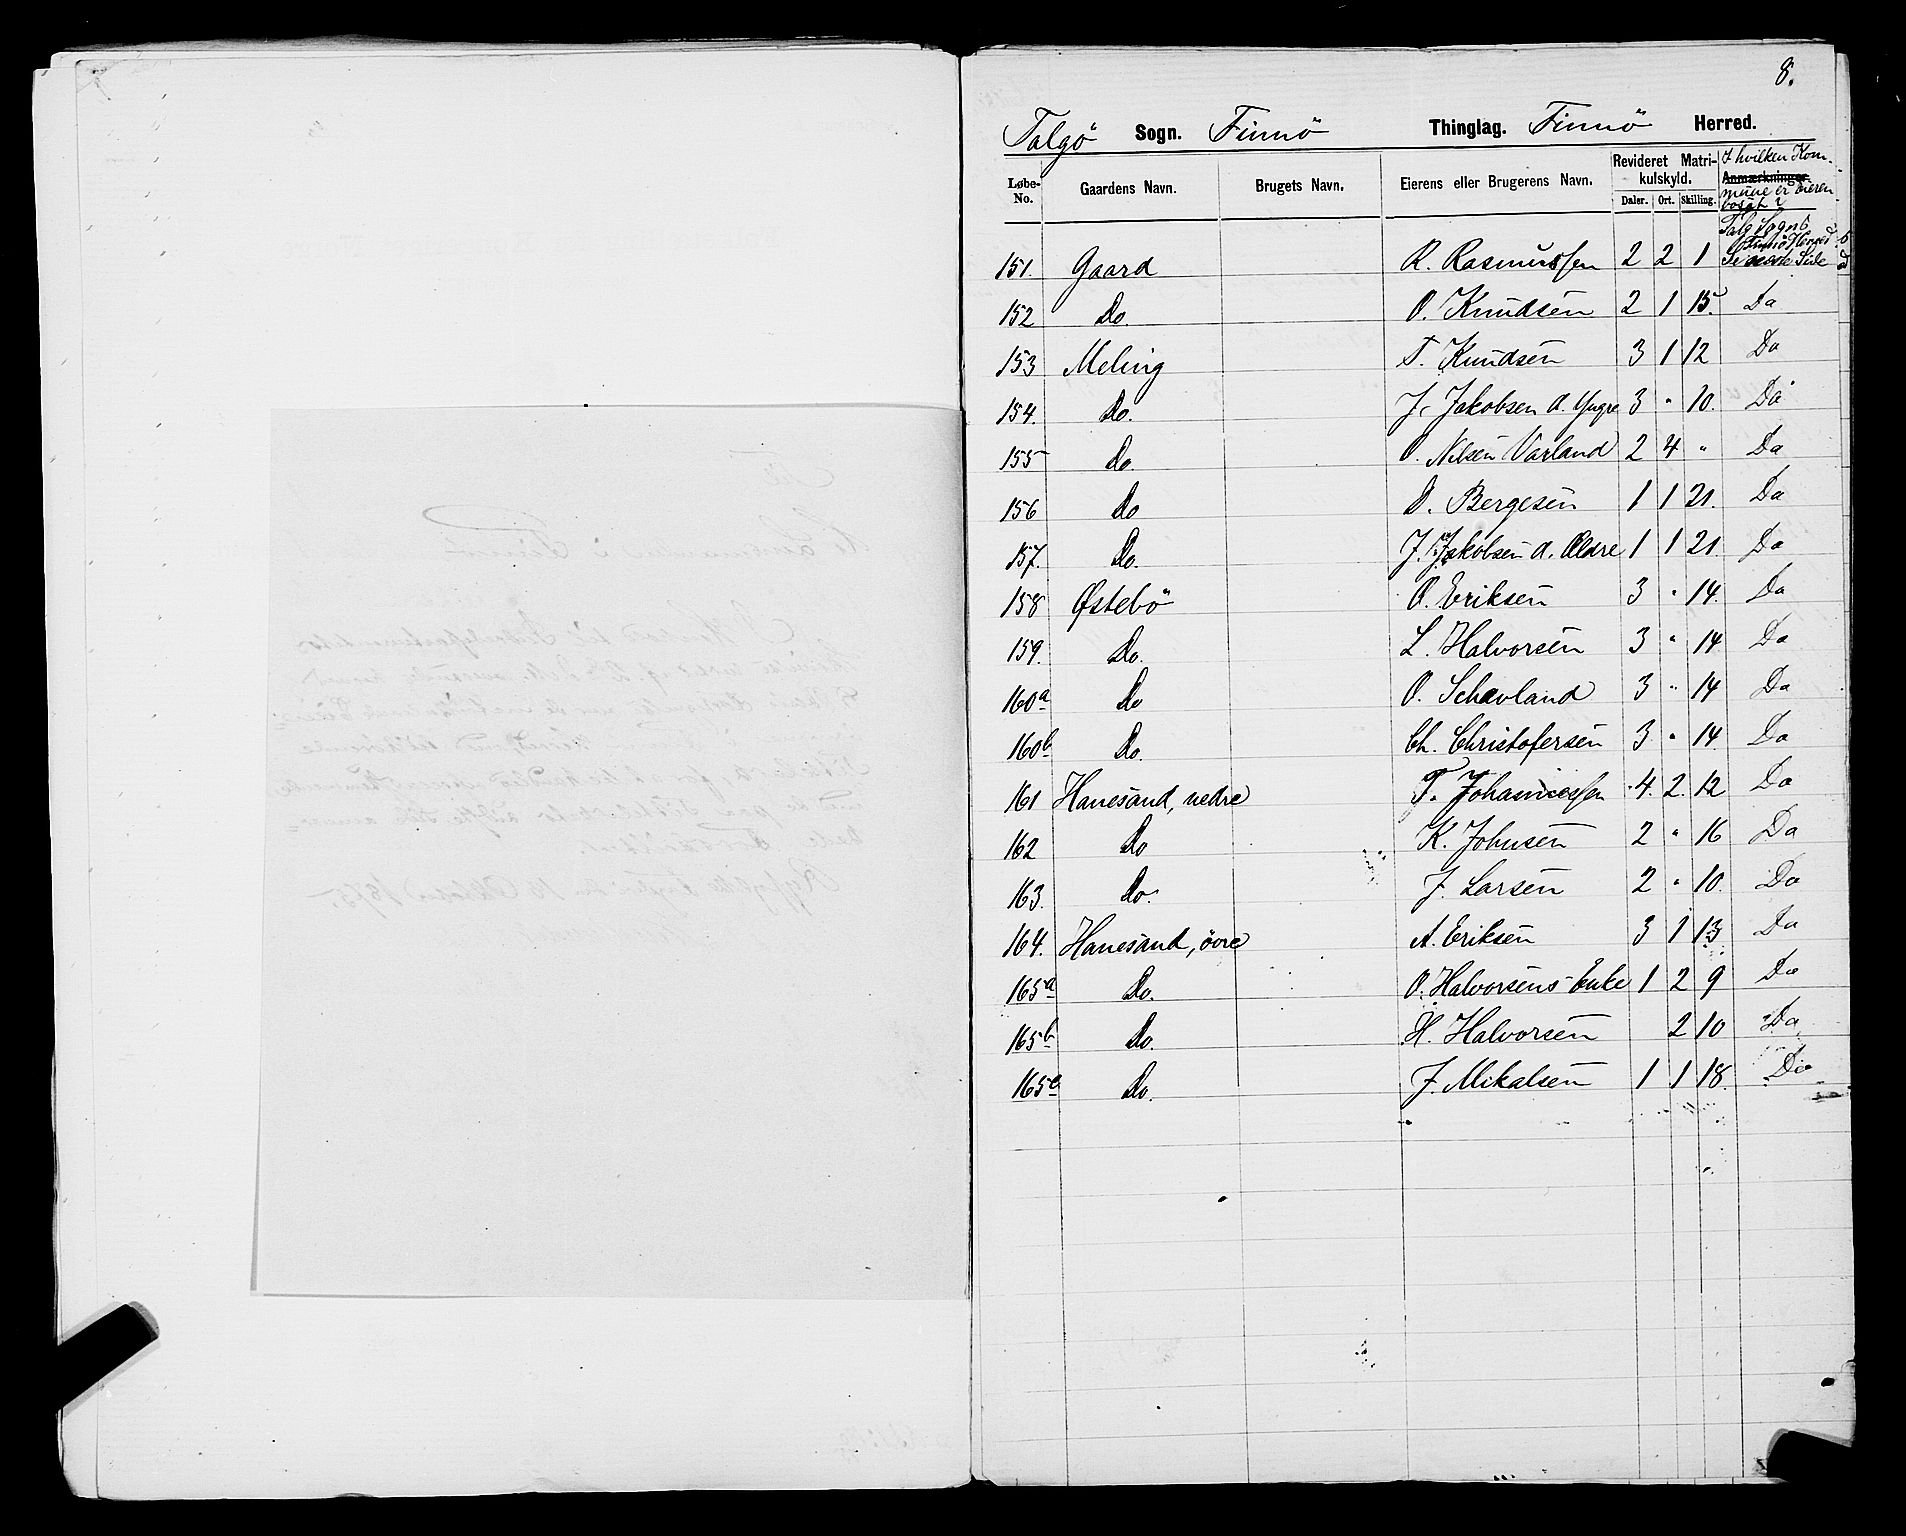 8.
Talgö Sogn. Finnö Thinglag. Finnö Herred.
Løbe-No. Gaardens Navn. Brugets Navn. Eierens eller Brugerens Navn. Revideret Matrikulskyld. Daler. Ort. Skilling. Anmærkninger. I hvilken Kommune er Eieren bosat?
151 Gaard R. Rasmussen 2 2 1
152 Do. O. Knudsen 2 1 15. Do
153 Meling T. Knudsen 3 1 12 Do
154. Do. J. Jakobsen d. Yngre 3 " 10. Do
155 Do. O. Nilsen Varland 2 4 " Do
156 Do O. Bergesen 1 1 21. Do
157. Do. J. Jakobsen d. Ældre 1 1 21 Do
158 Østebö O. Eriksen 3 " 14. Do
159. Do. L. Halvorsen 3 " 14 Do
160a Do O. Schavland 3 " 14 Do
160b Do. Ch. Christofersen 3 " 14 Do
161 Hanesand, nedre T. Johannessen 4. 2. 12 Do
162 Do K. Johnsen 2 " 16 Do
163. Do. J. Larsen 2 " 10. Do
164. Hanesand, övre A. Eriksen 3 1 13 Do
165a Do. O. Halvorsens Enke 1 2 9 Do
165b Do. H. Halvorsen 2 10 Do
165c Do. J. Mikalsen 1 1 18. Do